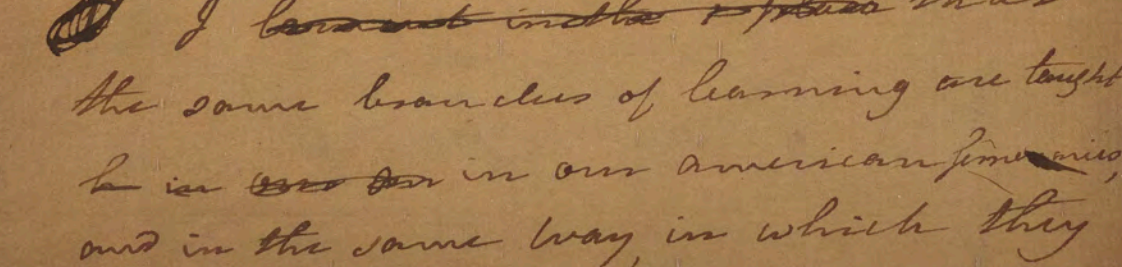 I
the same branches of learning are taught
in our american Seminaries,
and in the same way, in which they